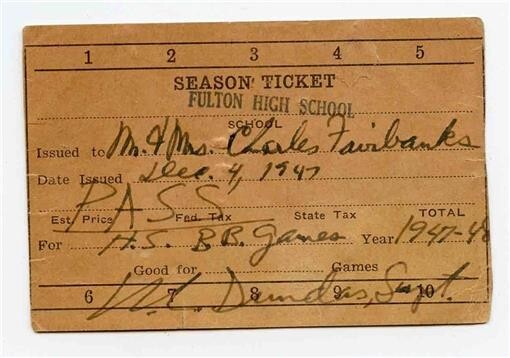 1 2 3 4 5
SEASON TICKET
FULTON HIGH SCHOOL
SCHOOL
Issued to Mr. & Mrs. Charles Fairbanks
Date Issued Dec. 4, 1947
PASS
Est. Price Fed. Tax State Tax TOTAL
For H.S. B.B. Games Year 1947-48
Good for Games
6 7 8 9 10
W.C. Dundas, Supt.